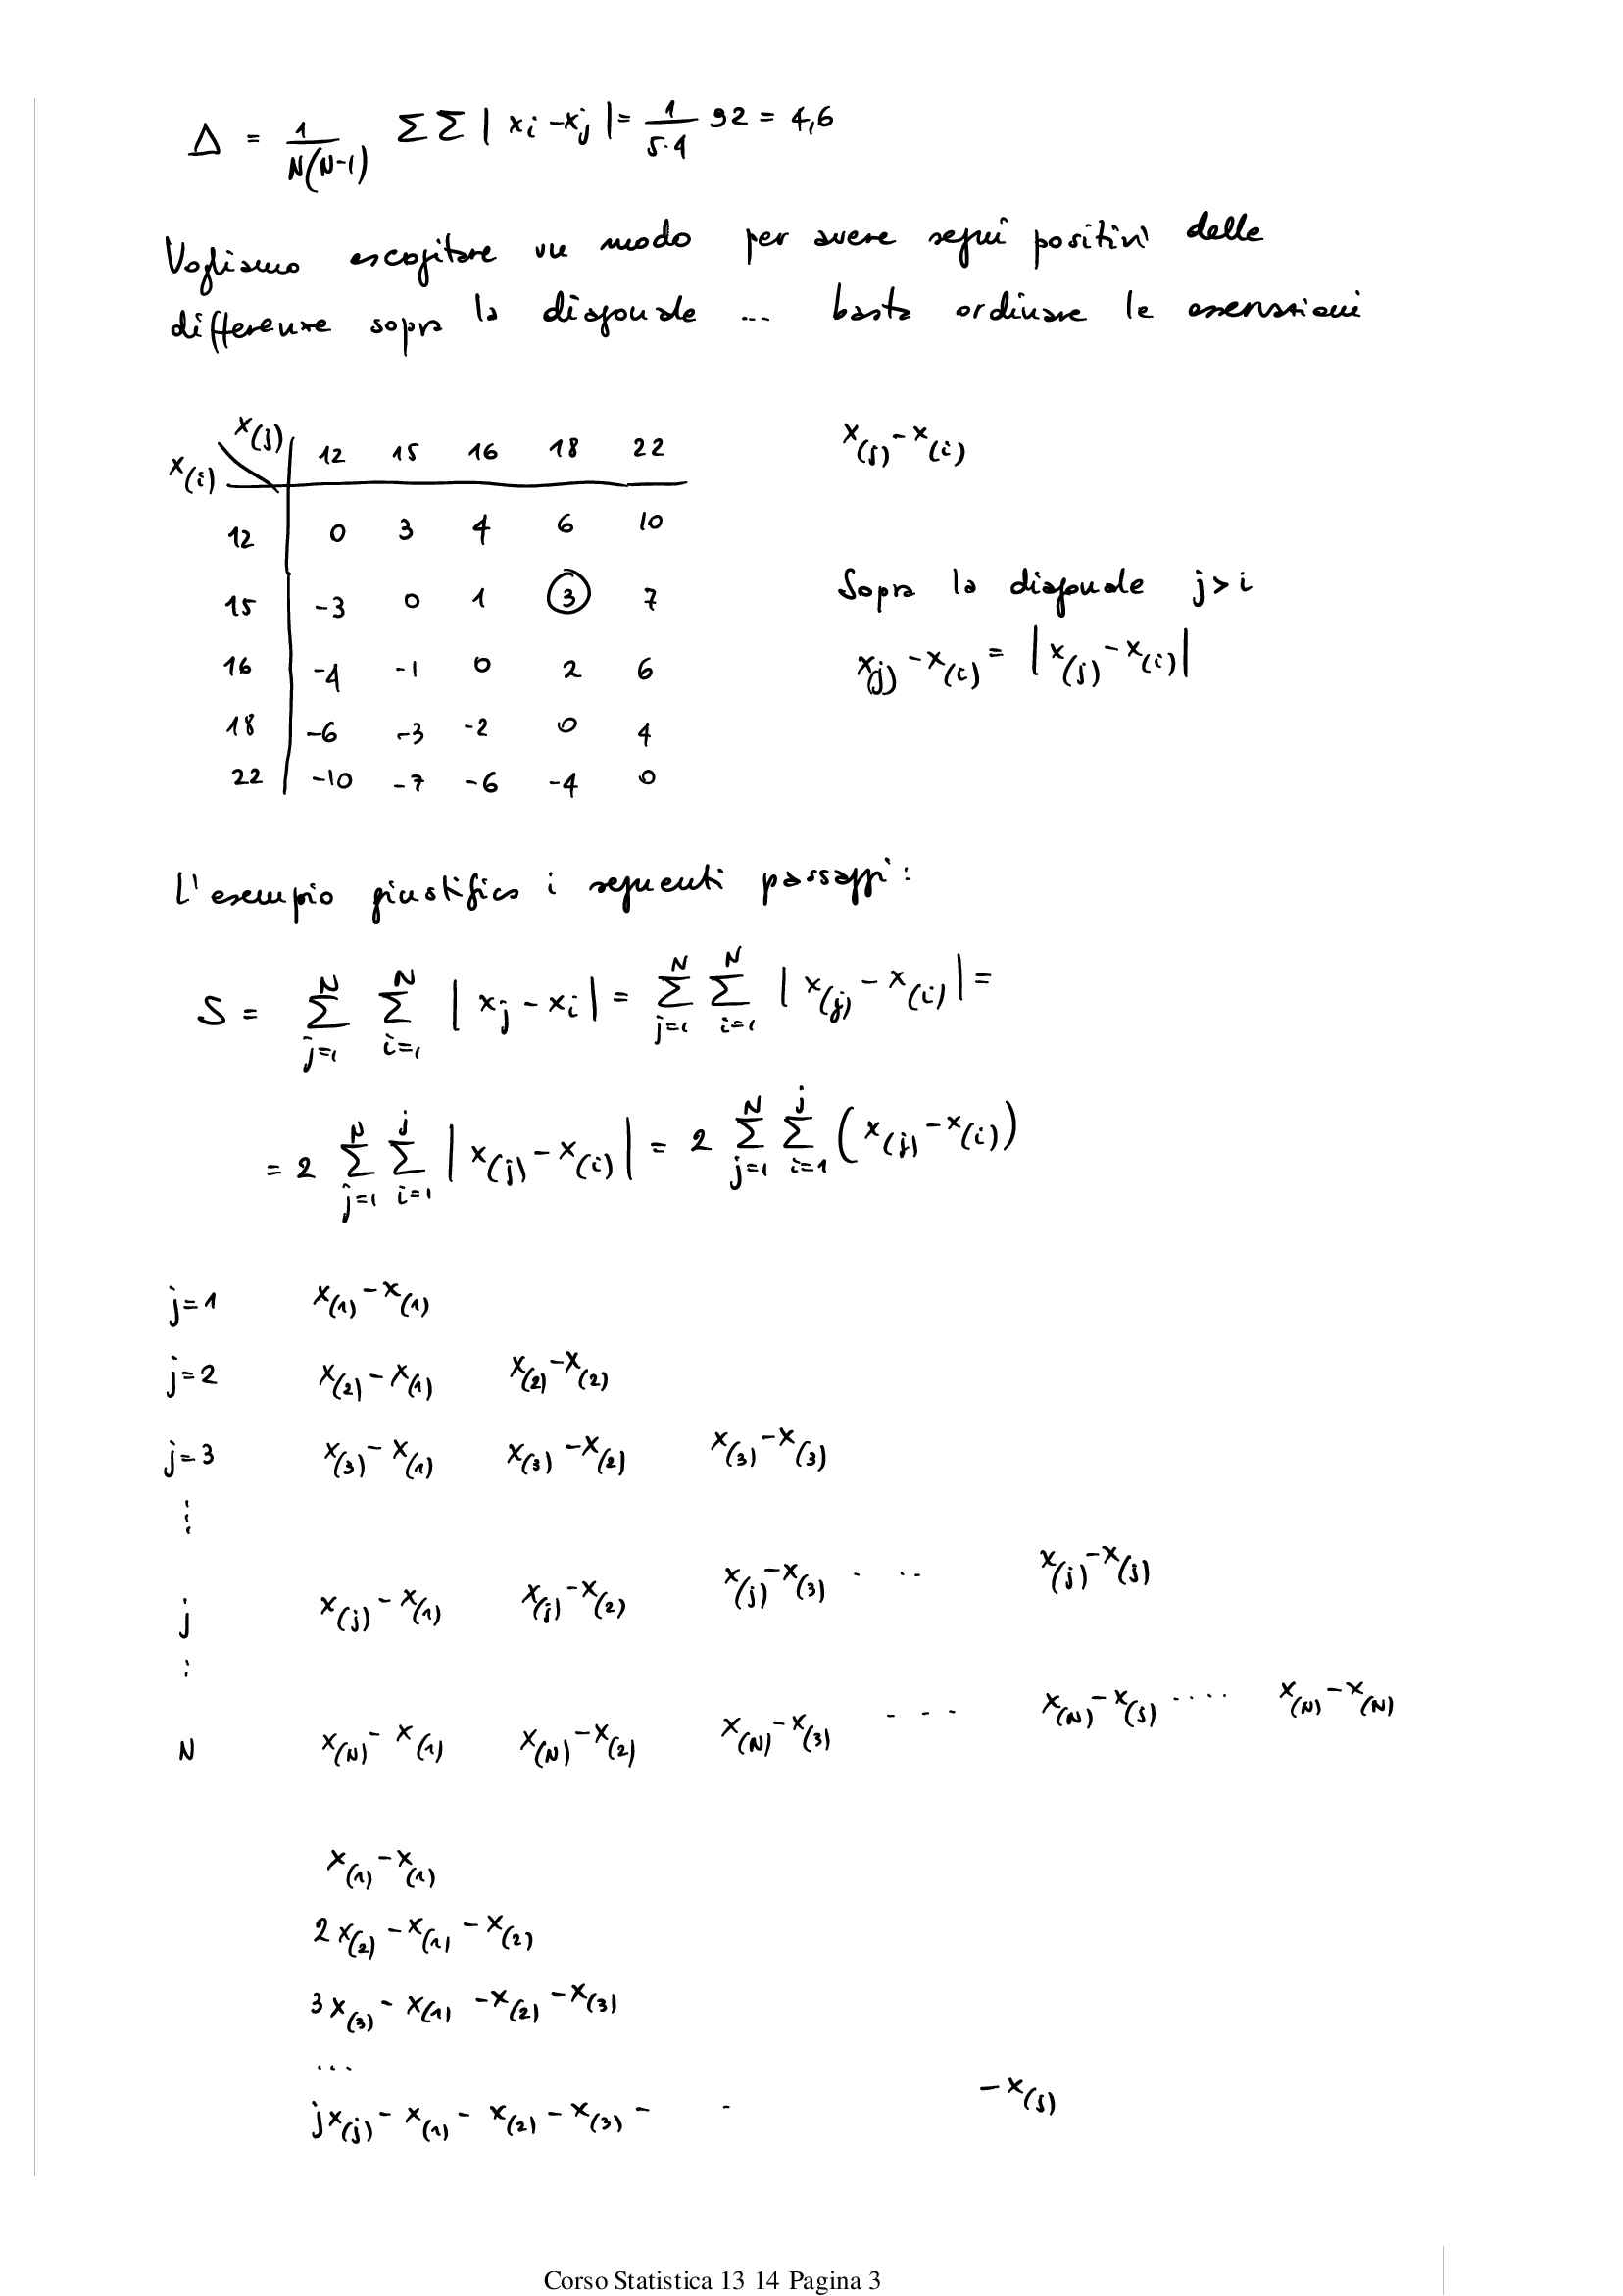 Δ = 1/(N(N-1)) ΣΣ | xi - xj | = 1/(5·4) 92 = 4,6
Vogliamo escogitare un modo per avere segni positivi delle
differenze sopra la diagonale ... basta ordinare le osservazioni
x(j) 12 15 16 18 22 x(j) - x(i)
x(i)
12 0 3 4 6 10
15 -3 0 1 3 7 Sopra la diagonale j>i
16 -4 -1 0 2 6 x(j) - x(i) = | x(j) - x(i) |
18 -6 -3 -2 0 4
22 -10 -7 -6 -4 0
L'esempio giustifica i seguenti passaggi:
S = Σ_{j=1}^{N} Σ_{i=1}^{N} | xj - xi | = Σ_{j=1}^{N} Σ_{i=1}^{N} | x(j) - x(i) | =
= 2 Σ_{j=1}^{N} Σ_{i=1}^{j} | x(j) - x(i) | = 2 Σ_{j=1}^{N} Σ_{i=1}^{j} ( x(j) - x(i) )
j=1 x(1) - x(1)
j=2 x(2) - x(1) x(2) - x(2)
j=3 x(3) - x(1) x(3) - x(2) x(3) - x(3)
⋮
j x(j) - x(1) x(j) - x(2) x(j) - x(3) . .. x(j) - x(j)
:
N x(N) - x(1) x(N) - x(2) x(N) - x(3) - - - x(N) - x(j) .... x(N) - x(N)
x(1) - x(1)
2x(2) - x(1) - x(2)
3x(3) - x(1) - x(2) - x(3)
...
jx(j) - x(1) - x(2) - x(3) - - - x(j)
Corso Statistica 13 14 Pagina 3